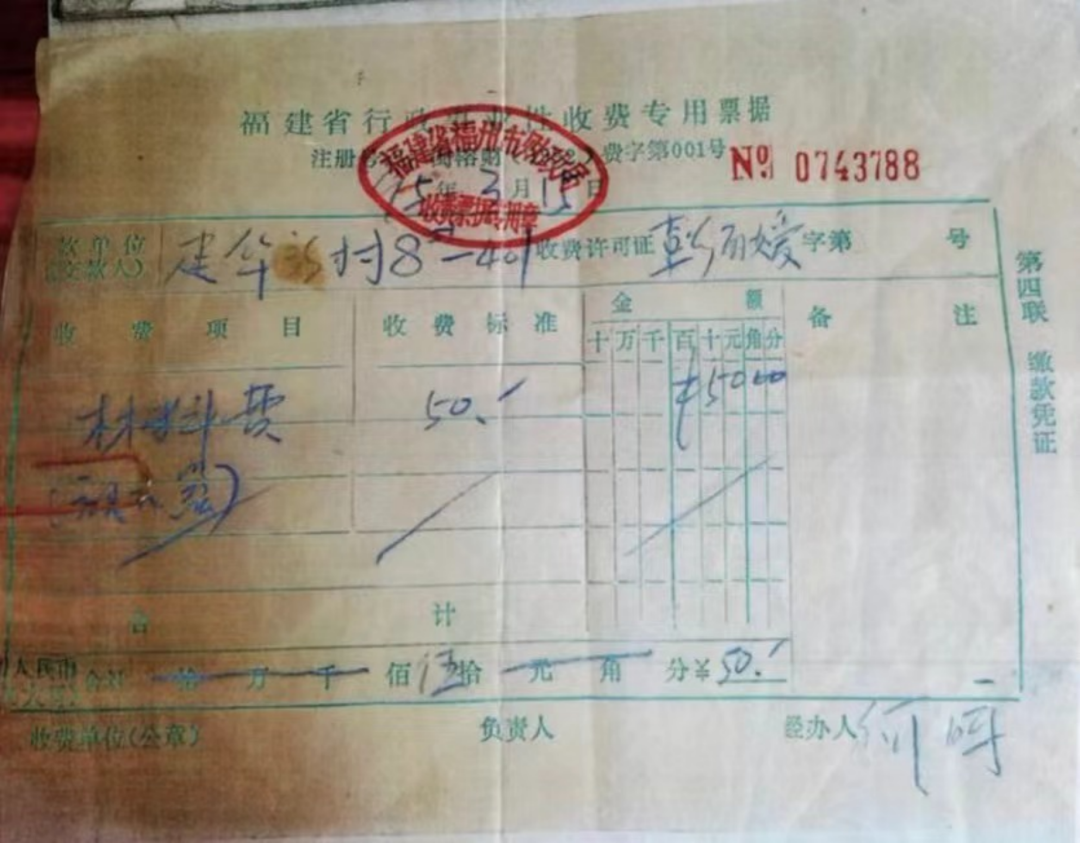 福建省行政事业性收费专用票据
注册号 费字第001号
No 0743788
福建省福州市财政局
收费票据专用章
年3月15日
款单位
(交款人)
建华新村8 - 401
收费许可证 字第 号
收费项目 收费标准 金额 备注
十万千百十元角分
材料费 50. ¥5000
合计
人民币 合计 拾万千佰伍拾元角分¥50.
收费单位(公章) 负责人 经办人
第四联 缴款凭证